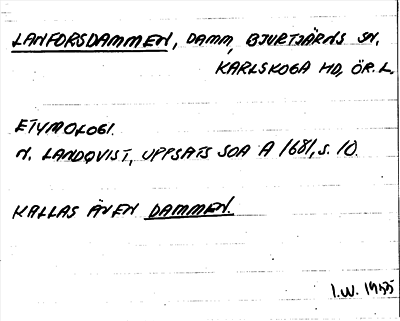 LANFORSDAMMEN, DAMM, BJURTJÄRNS SN,
KARLSKOGA HD, ÖR. L.
ETYMOLOGI.
N. LANDQVIST, UPPSATS SOA A 1681, S. 10.
KALLAS ÄVEN DAMMEN.
I.W. 1955